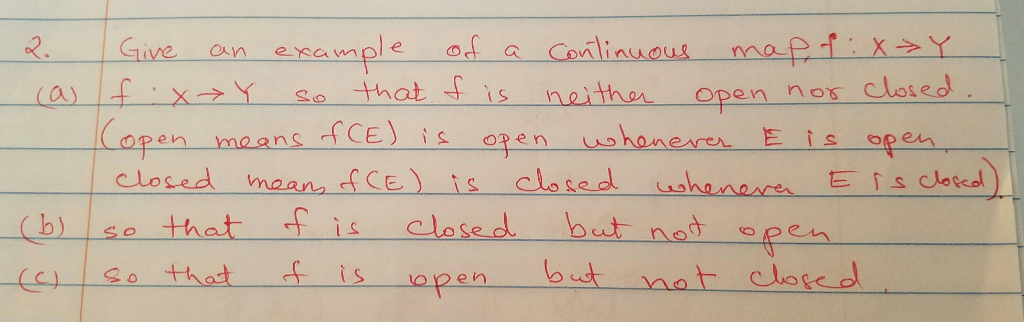 2. Give an example of a continuous map f : X → Y
(a) f : X → Y so that f is neither open nor closed.
(open means f(E) is open whenever E is open,
closed means f(E) is closed whenever E is closed).
(b) so that f is closed but not open
(c) so that f is open but not closed.